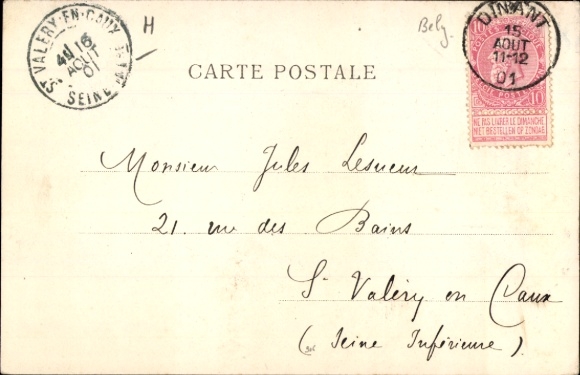 ST VALERY-EN-CAUX
4E 16
AOUT
01
SEINE INF
H
Belg.
DINANT
15
AOUT
11-12
01
10
10
NE PAS LIVRER LE DIMANCHE
NIET BESTELLEN OP ZONDAG
CARTE POSTALE
Monsieur Jules Lesueur
21. rue des Bains
St Valéry en Caux
(Seine Inférieure).